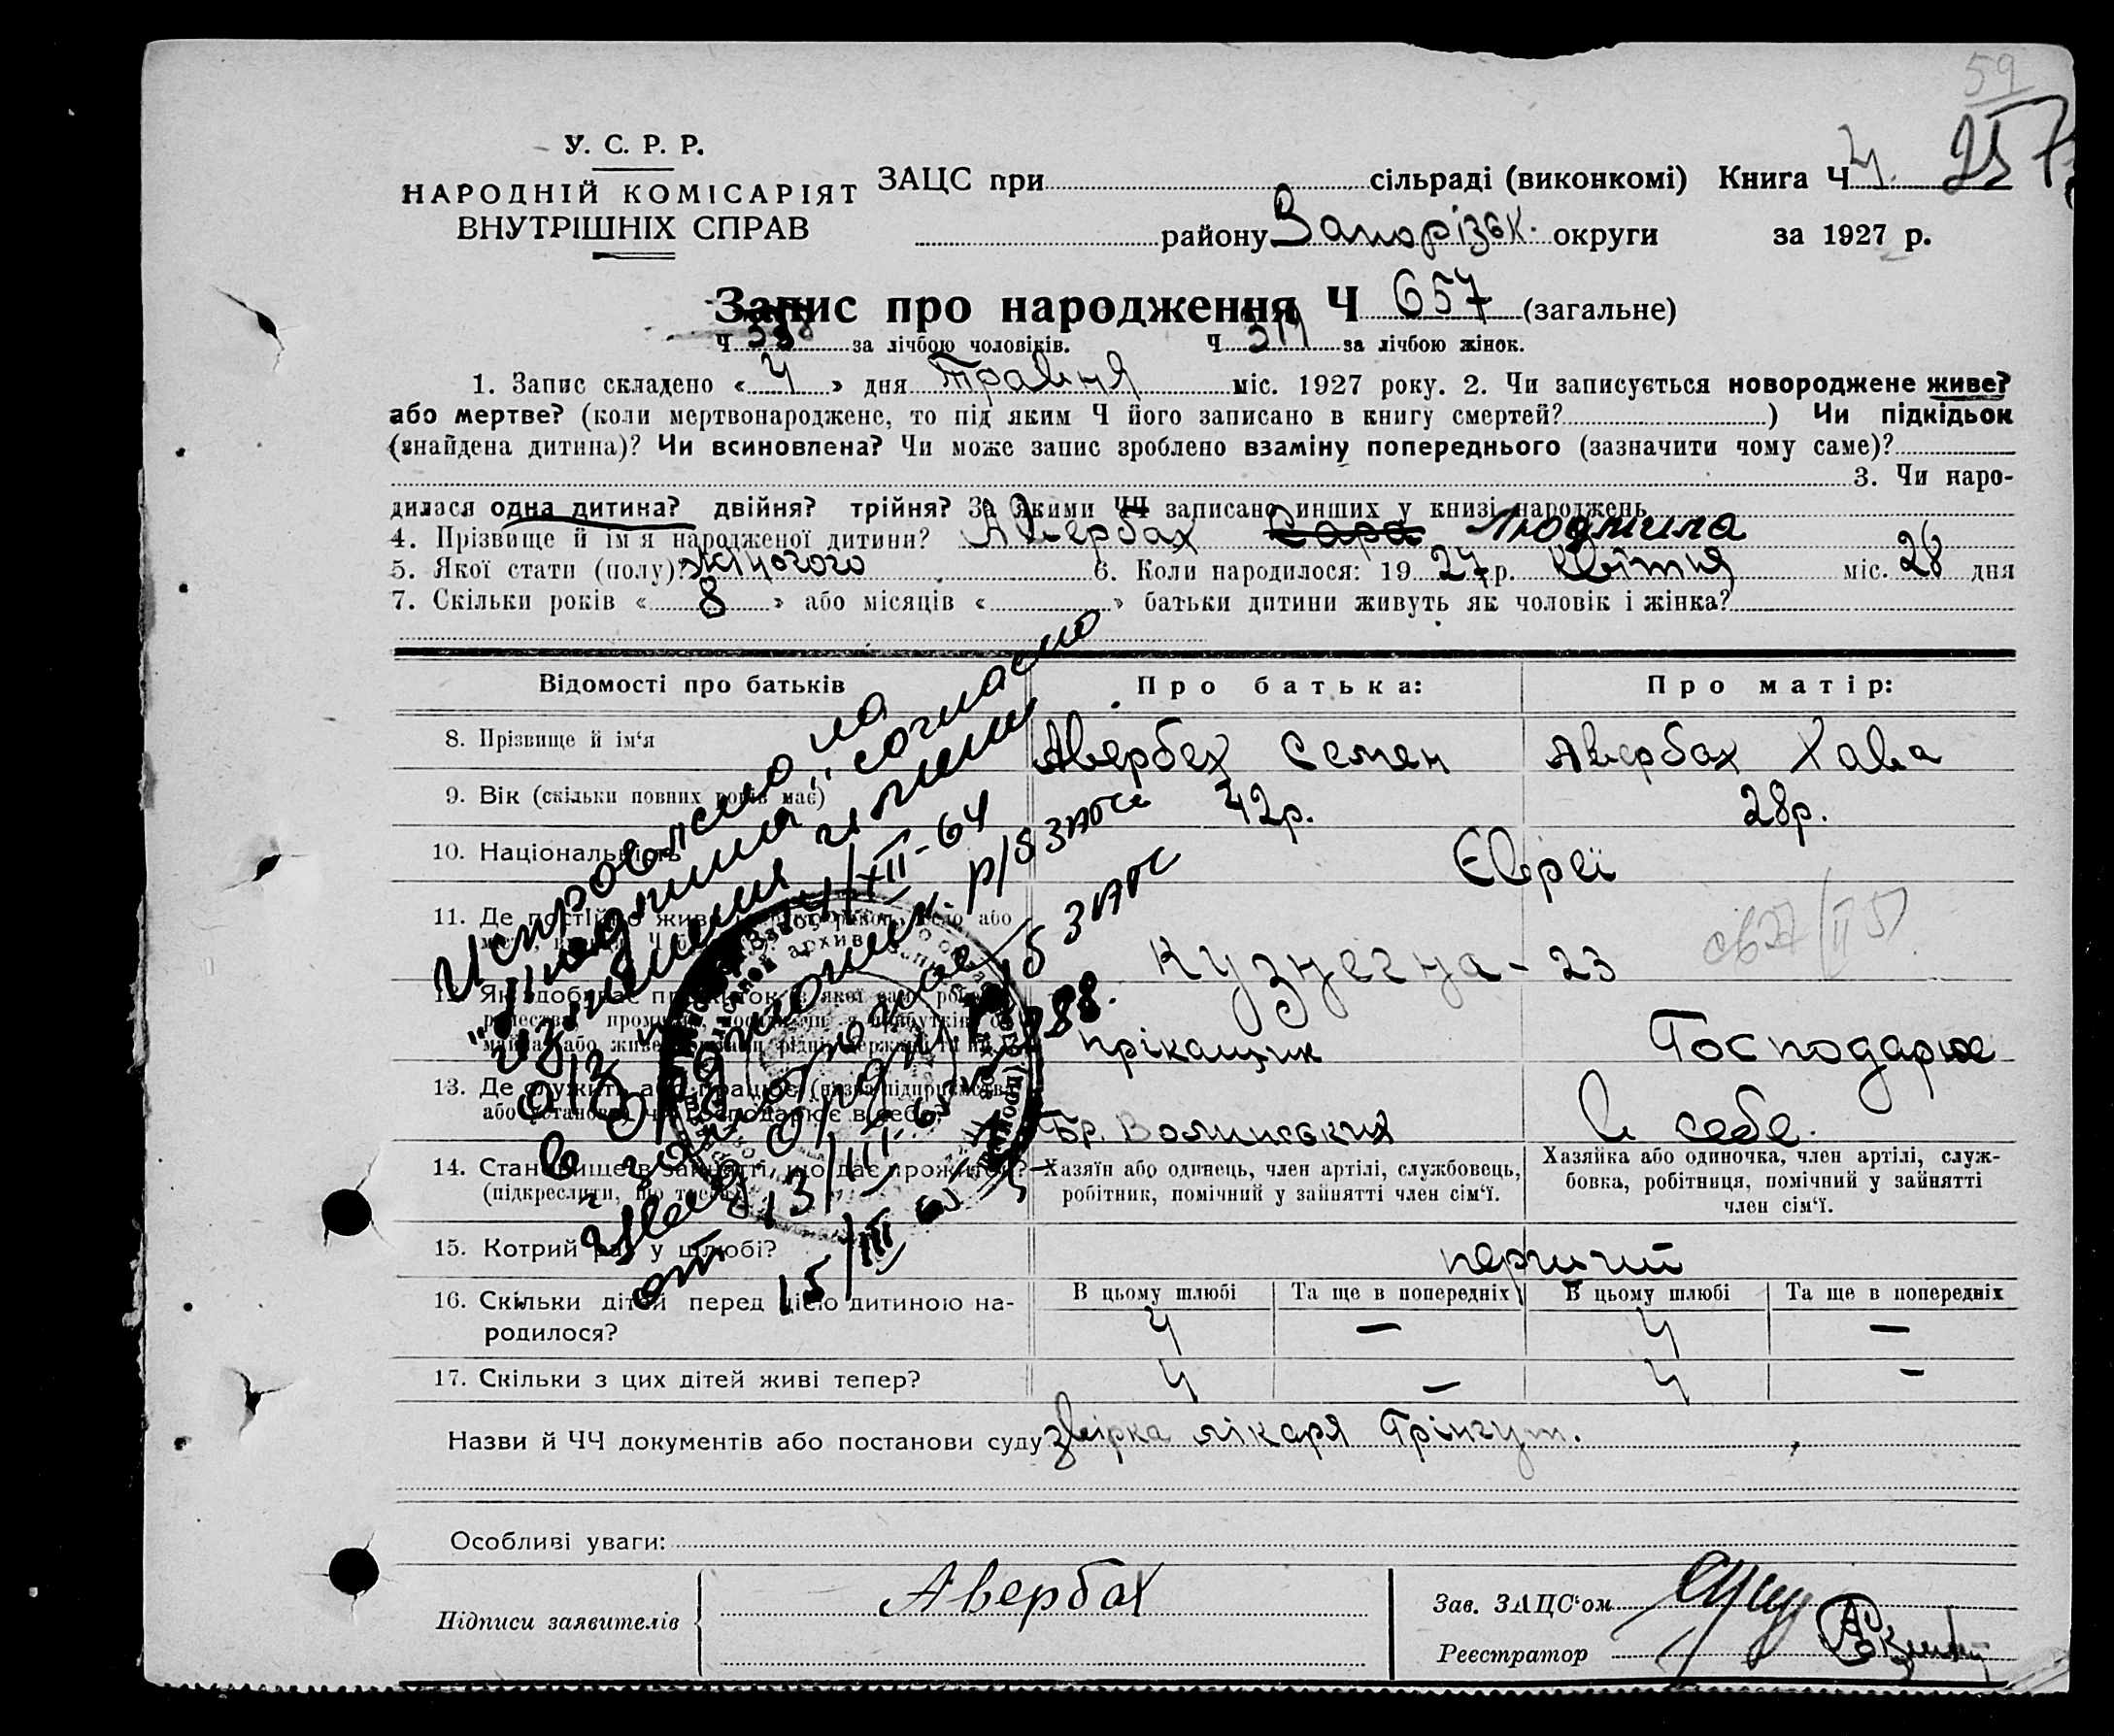 59
У. С. Р. Р.
НАРОДНІЙ КОМІСАРІЯТ
ВНУТРІШНІХ СПРАВ
ЗАЦС при сільраді (виконкомі) Книга Ч 4. 257
району Запорізьк. округи за 1927 р.
Запис про народження Ч 657 (загальне)
Ч за лічбою чоловіків. Ч за лічбою жінок.
1. Запис складено « 4 » дня травня міс. 1927 року. 2. Чи записується новороджене живе?
або мертве? (коли мертвонароджене, то під яким Ч його записано в книгу смертей? ) Чи підкідьок
(знайдена дитина)? Чи всиновлена? Чи може запис зроблено взаміну попереднього (зазначити чому саме)?
3. Чи наро-
дилася одна дитина? двійня? трійня? За якими ЧЧ записано инших у книзі народжень
4. Прізвище й ім'я народженої дитини? Авербах Сара Людмила
5. Якої стати (полу)? жіночого 6. Коли народилося: 19 27 р. квітня міс. 28 дня
7. Скільки років « 8 » або місяців « » батьки дитини живуть як чоловік і жінка?
Відомості про батьків Про батька: Про матір:
8. Прізвище й ім'я Авербах Семен Авербах Хава
9. Вік (скільки повних років має) 42р. 28р.
10. Національність Євреї
11. Де постійно живе Кузнечна - 23
12. Як здобуває прожиток прікащик Господарює
13. Де служить або працює Бр. Волинських в себе.
або установи чи господарює в себе?
14. Становище в занятті, що дає прожиток? Хазяїн або одинець, член артілі, службовець, Хазяйка або одиночка, член артілі, служ-
(підкреслити, що треба) робітник, помічний у зайнятті член сім'ї. бовка, робітниця, помічний у зайнятті
член сім'ї.
15. Котрий раз у шлюбі? перший
16. Скільки дітей перед цією дитиною на- В цьому шлюбі Та ще в попередніх В цьому шлюбі Та ще в попередніх
родилося? 4 — 4 —
17. Скільки з цих дітей живі тепер? 4 — 4 —
Исправлено на
"Людмила" согласно
изменения имени
XII-64
р/б ЗАГС
15/III 65
Назви й ЧЧ документів або постанови суду звірка лікаря Грінгут.
Особливі уваги:
Підписи заявителів Авербах Зав. ЗАЦС'ом
Реєстратор